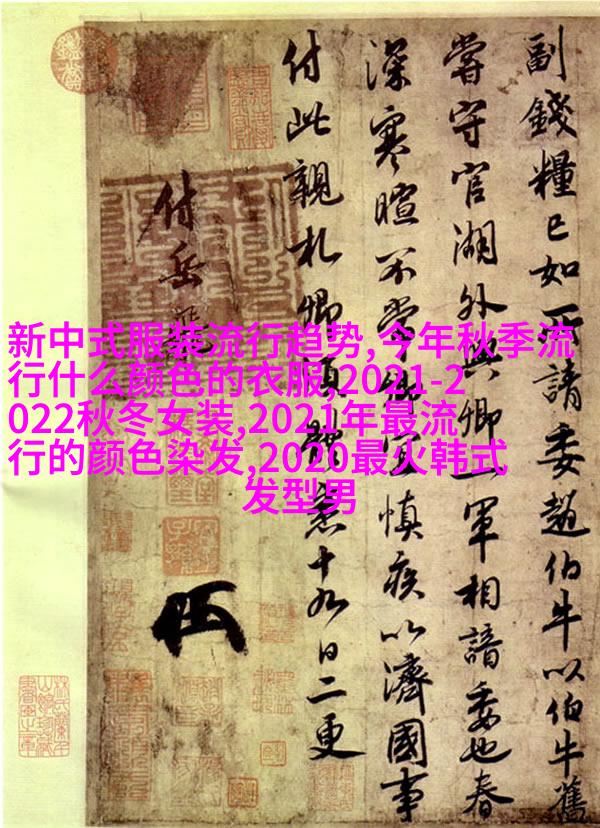 新中式服装流行趋势,今年秋季流
行什么颜色的衣服,2021-2
022秋冬女装,2021年最流
行的颜色染发,2020最火韩式
发型男
副錢糧已如所請委趙伯牛以伯牛舊
嘗守官湖外與卿一軍相諳委也春
深寒暄不常卿宜慎疾以濟國事
付此親札卿須體悉十九日二更
付岳飛